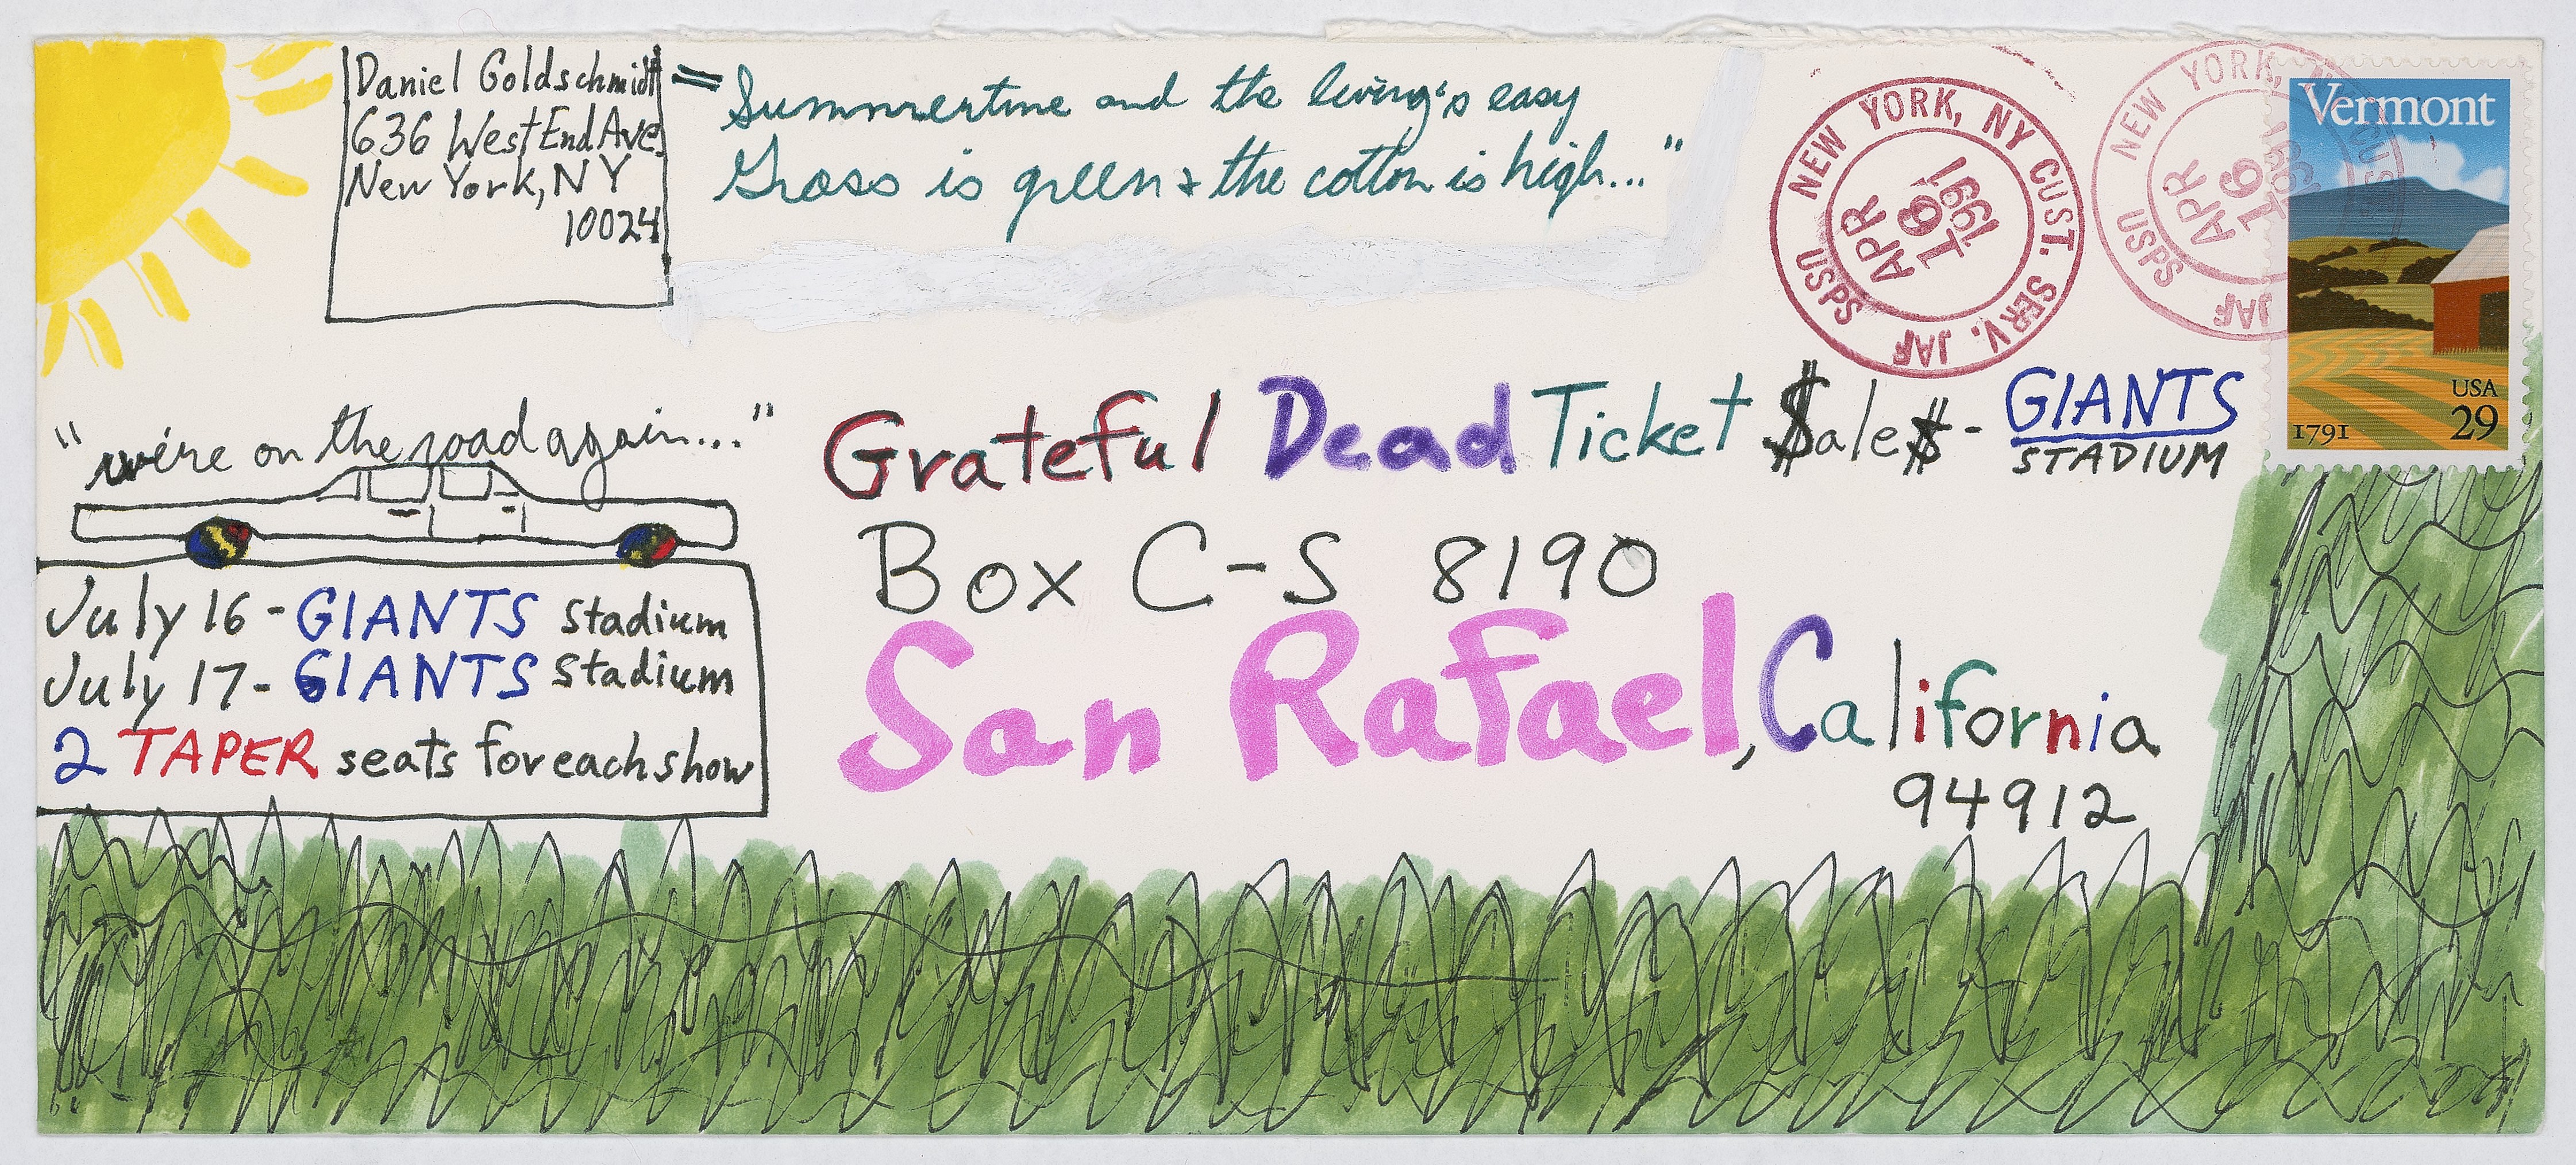 Daniel Goldschmidt
636 West End Ave.
New York, NY
10024
Summertime and the living's easy
Grass is green & the cotton is high..."
NEW YORK, NY CUST. SERV. JAF USPS
APR
16
1991
NEW YORK, NY CUST. JAF USPS
APR
16
1991
Vermont
1791
USA
29
"we're on the road again..."
Grateful Dead Ticket $ale$ - GIANTS
STADIUM
Box C-S 8190
San Rafael, California
94912
July 16 - GIANTS Stadium
July 17 - GIANTS Stadium
2 TAPER seats for each show